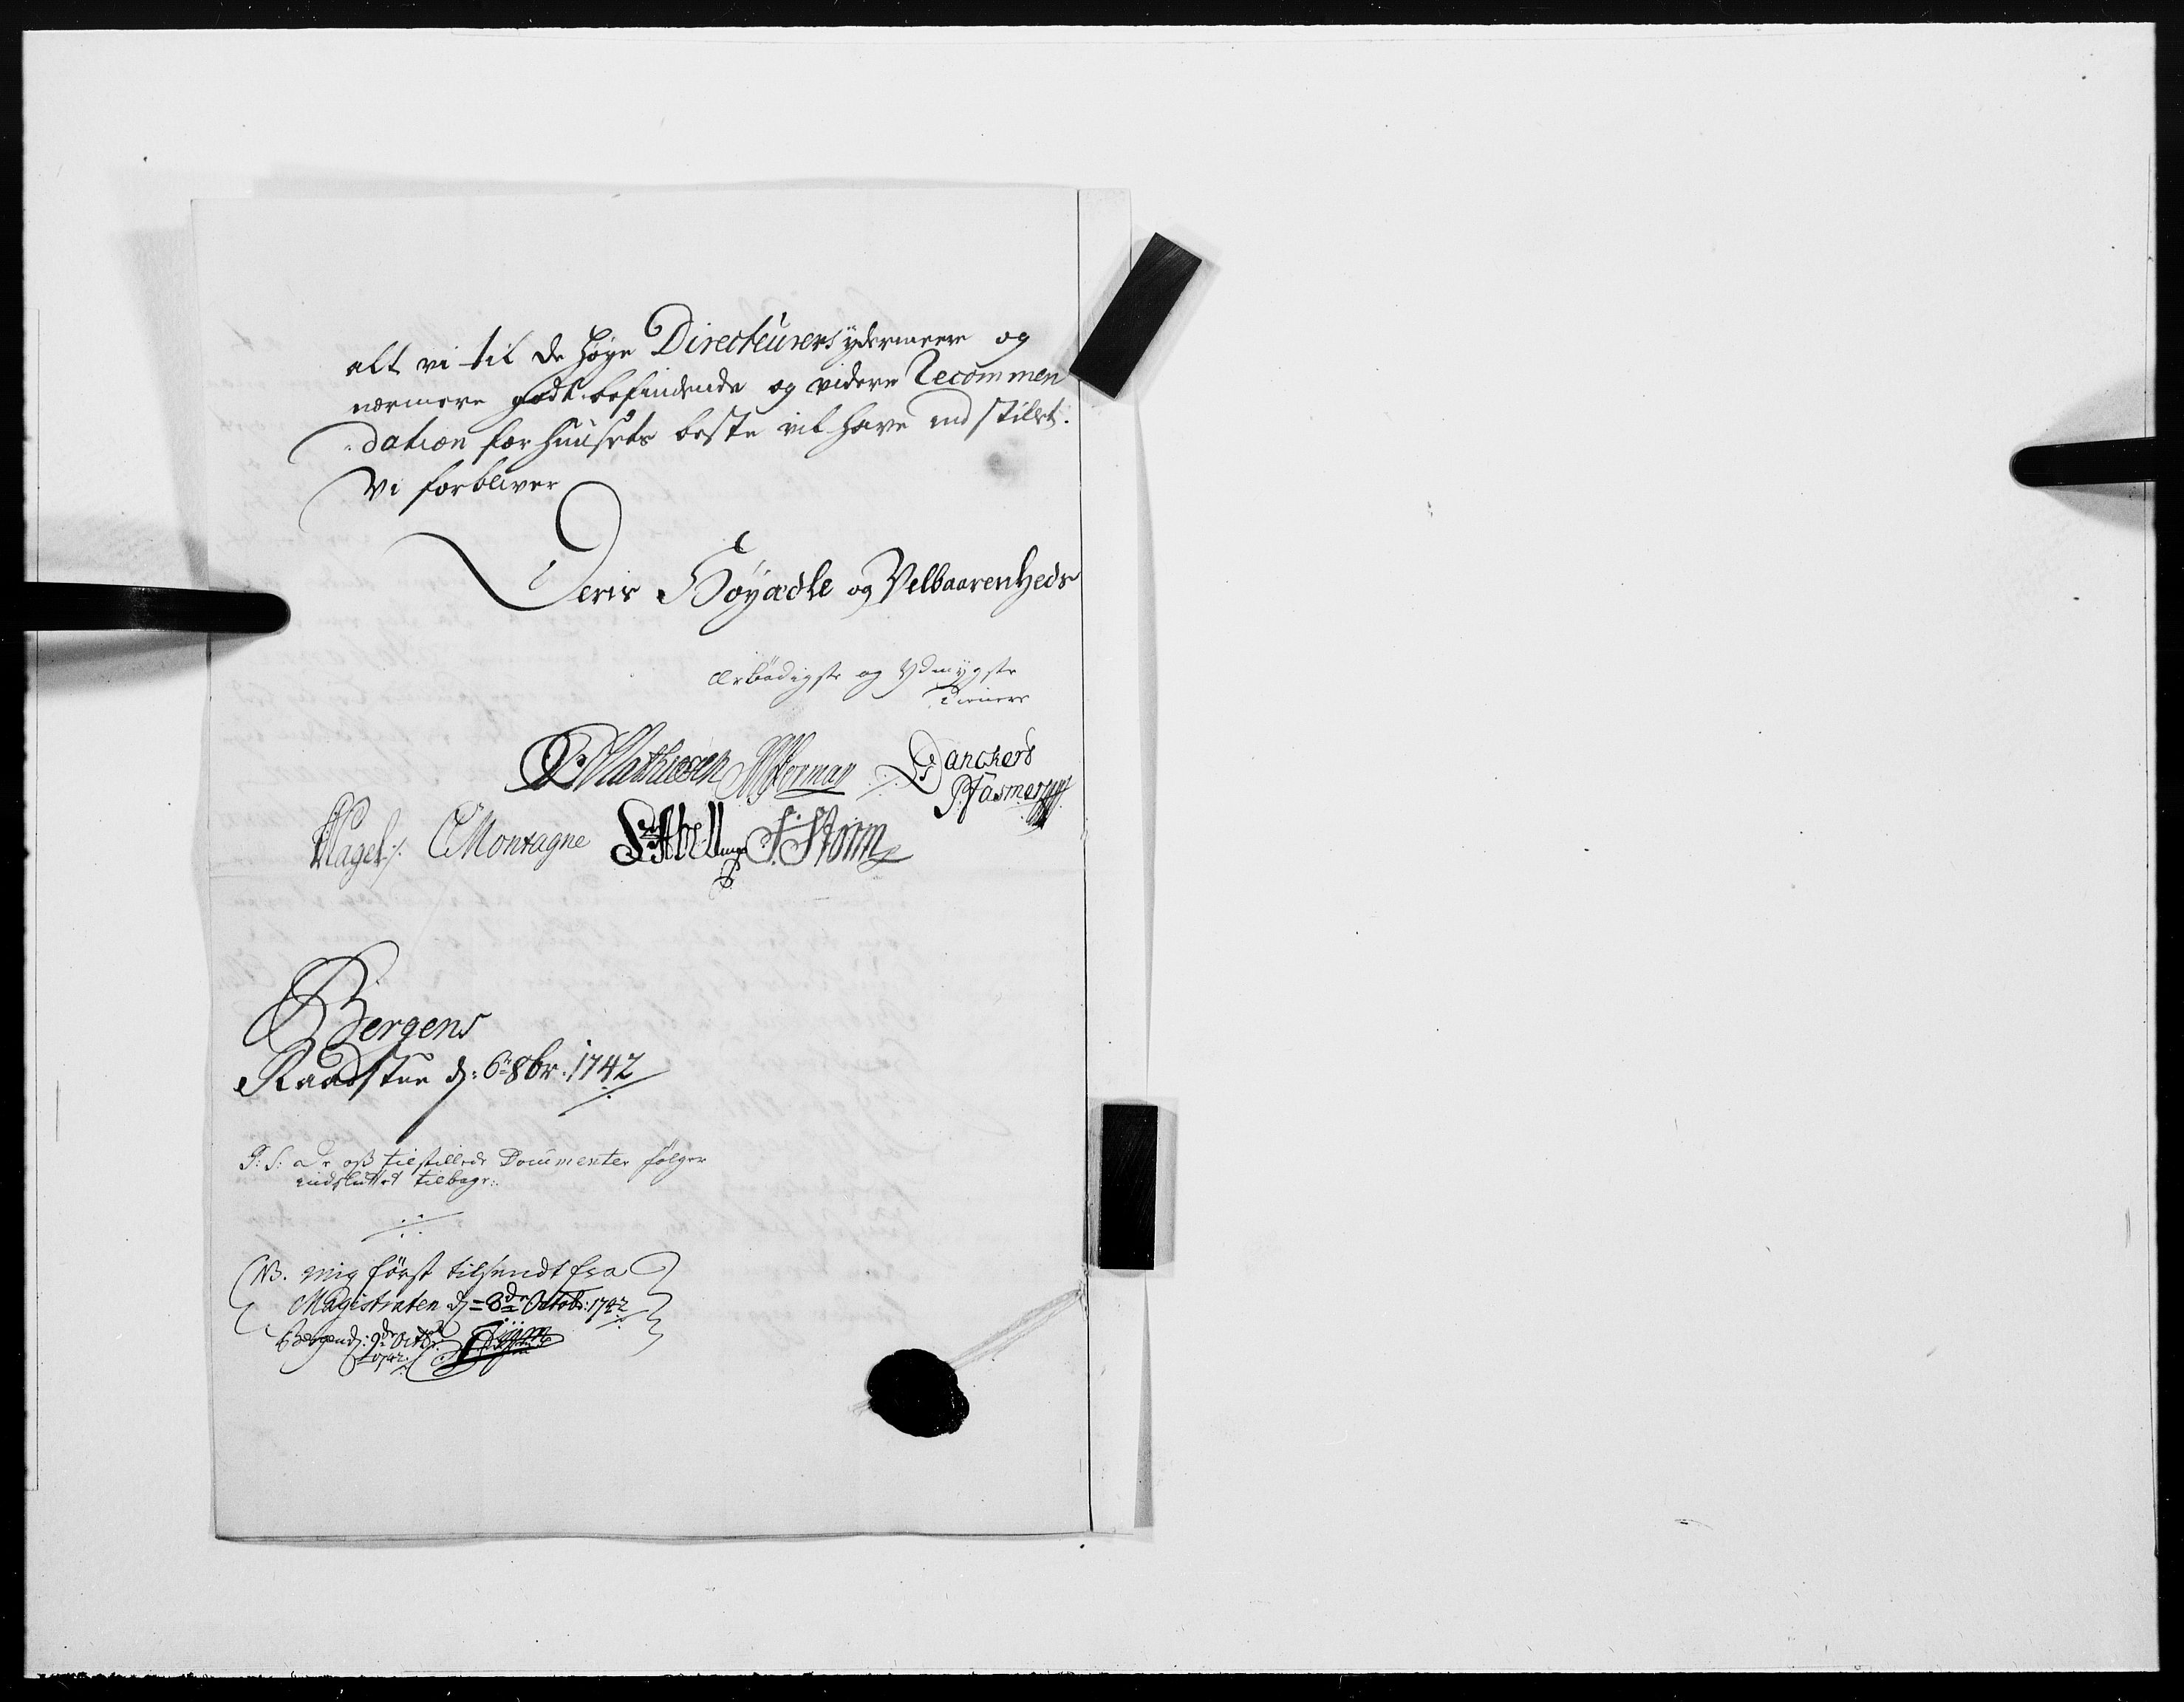 alt vi til de høye Directeurers ydermeere og
nærmere godtbefindende og videre Recommen
dation for Huusets beste vil have indstillet.
Vi forbliver
Deris Höyædle og Velbaarenheds
ærbödigste og Ydmygste
Tienere
Mathiesen Danckers
P. Fasmer
Hagel C Montagne F: Storm
Bergens
Raadstue d: 6te 8br: 1742
P: S: De oß tilstillede Documenter følger
indsluttet tilbage:
NB. mig först tilsendt fra
Magistraten d = 8de Octobr: 1742
Bergen d: 9de Octbr
1742